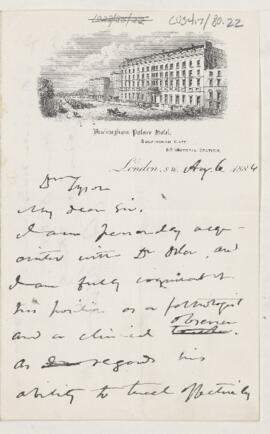 CUS417/80.22
Buckingham Palace Hotel,
BUCKINGHAM GATE,
OP. VICTORIA STATION,
London, S.W. Aug 6 1884
Dr Tyson
My dear Sir.
I am personally acqu-
ainted with Dr Osler, and
I am fully cognizant of
his position as a pathologist
and a clinical observer
as regards his
ability to teach effectively